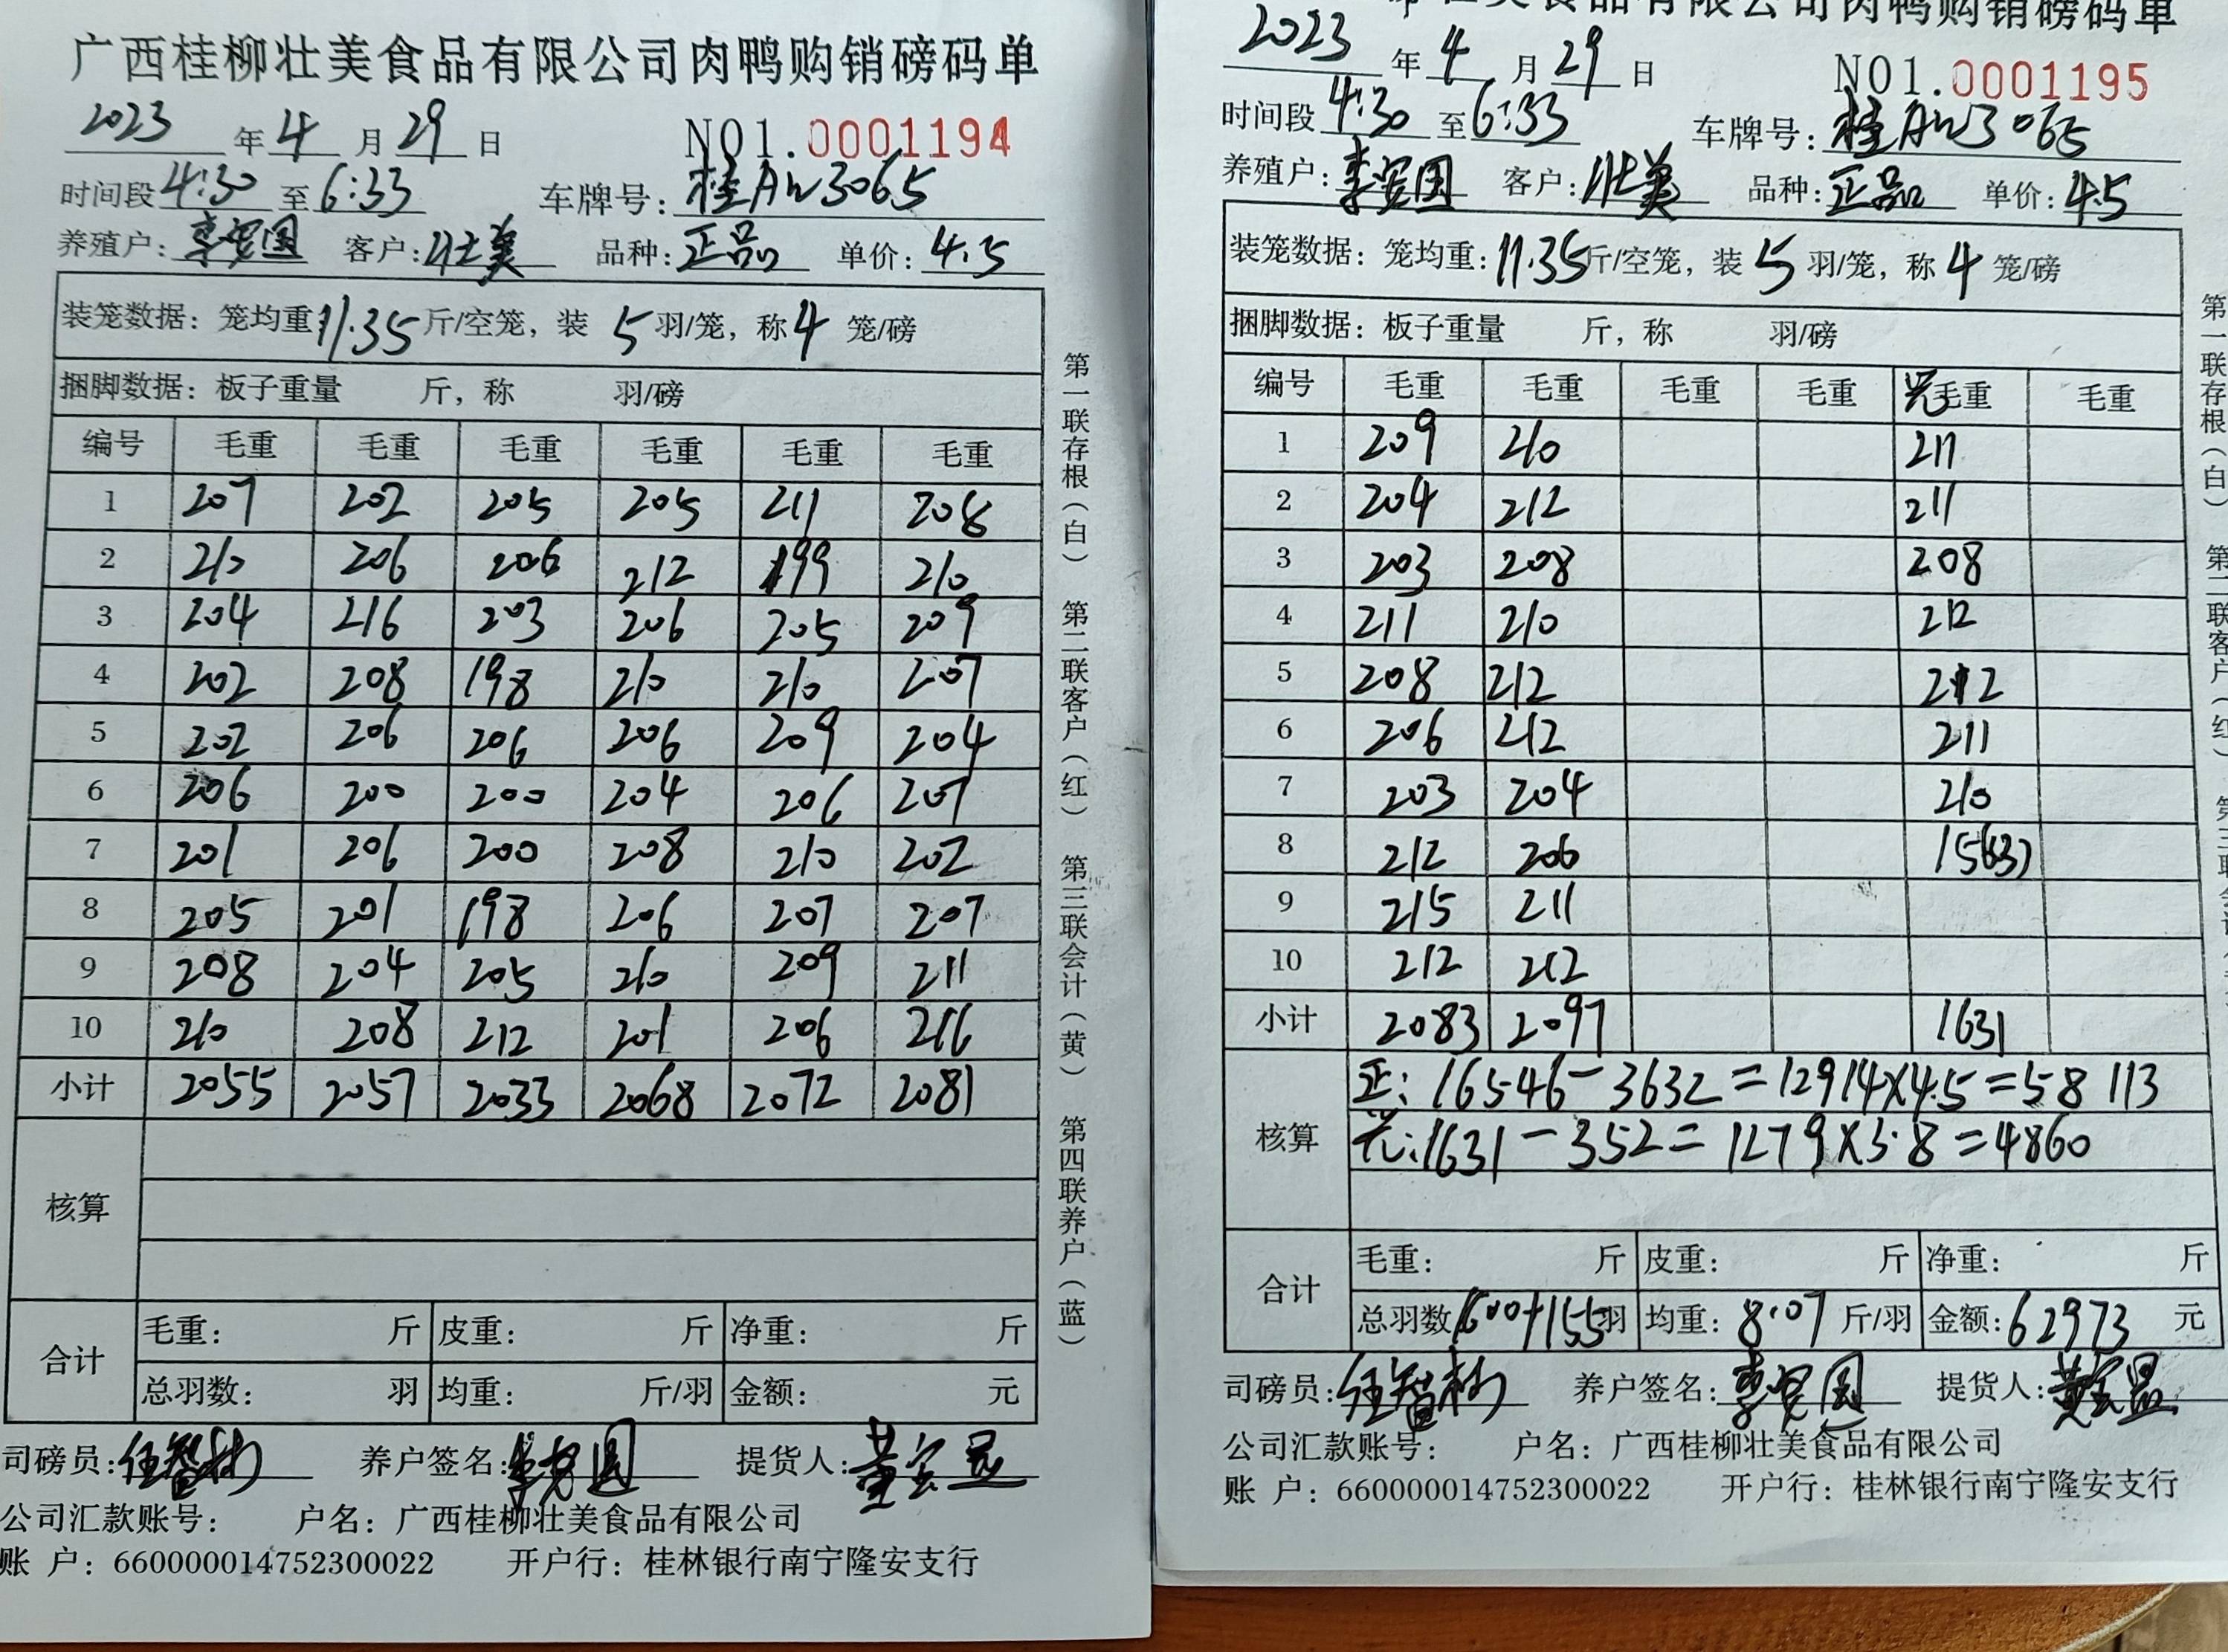 广西桂柳壮美食品有限公司肉鸭购销磅码单
2023年4月29日 NO1.0001194
时间段4:30至6:33 车牌号：桂AW3065
养殖户：李 国 客户：壮美 品种：正品 单价：4.5
装笼数据：笼均重11.35斤/空笼，装5羽/笼，称4笼/磅
捆脚数据：板子重量 斤，称 羽/磅
编号 毛重 毛重 毛重 毛重 毛重 毛重
1 207 202 205 205 211 208
2 210 206 206 212 199 210
3 204 216 203 206 205 209
4 202 208 198 210 210 207
5 202 206 206 206 209 204
6 206 200 200 204 206 207
7 201 206 200 208 210 202
8 205 201 198 206 207 207
9 208 204 205 210 209 211
10 210 208 212 201 206 216
小计 2055 2057 2033 2068 2072 2081
核算
合计 毛重： 斤 皮重： 斤 净重： 斤
总羽数： 羽 均重： 斤/羽 金额： 元
司磅员：任智 养户签名：李 国 提货人：黄
公司汇款账号： 户名：广西桂柳壮美食品有限公司
账 户：660000014752300022 开户行：桂林银行南宁隆安支行
第一联存根（白） 第二联客户（红） 第三联会计（黄） 第四联养户（蓝）
壮美食品有限公司肉鸭购销磅码单
2023年4月29日 NO1.0001195
时间段4:30至6:33 车牌号：桂AW3065
养殖户：李 国 客户：壮美 品种：正品 单价：4.5
装笼数据：笼均重：11.35斤/空笼，装5羽/笼，称4笼/磅
捆脚数据：板子重量 斤，称 羽/磅
编号 毛重 毛重 毛重 毛重 光毛重 毛重
1 209 210 211
2 204 212 211
3 203 208 208
4 211 210 212
5 208 212 212
6 206 212 211
7 203 204 210
8 212 206 156(3)
9 215 211
10 212 212
小计 2083 2097 1631
核算 正：16546-3632=12914×4.5=58113
光：1631-352=1279×3.8=4860
合计 毛重： 斤 皮重： 斤 净重： 斤
总羽数1600+155羽 均重：8.07斤/羽 金额：62973元
司磅员：任智 养户签名：李 国 提货人：黄
公司汇款账号： 户名：广西桂柳壮美食品有限公司
账 户：660000014752300022 开户行：桂林银行南宁隆安支行
第一联存根（白） 第二联客户（红） 第三联